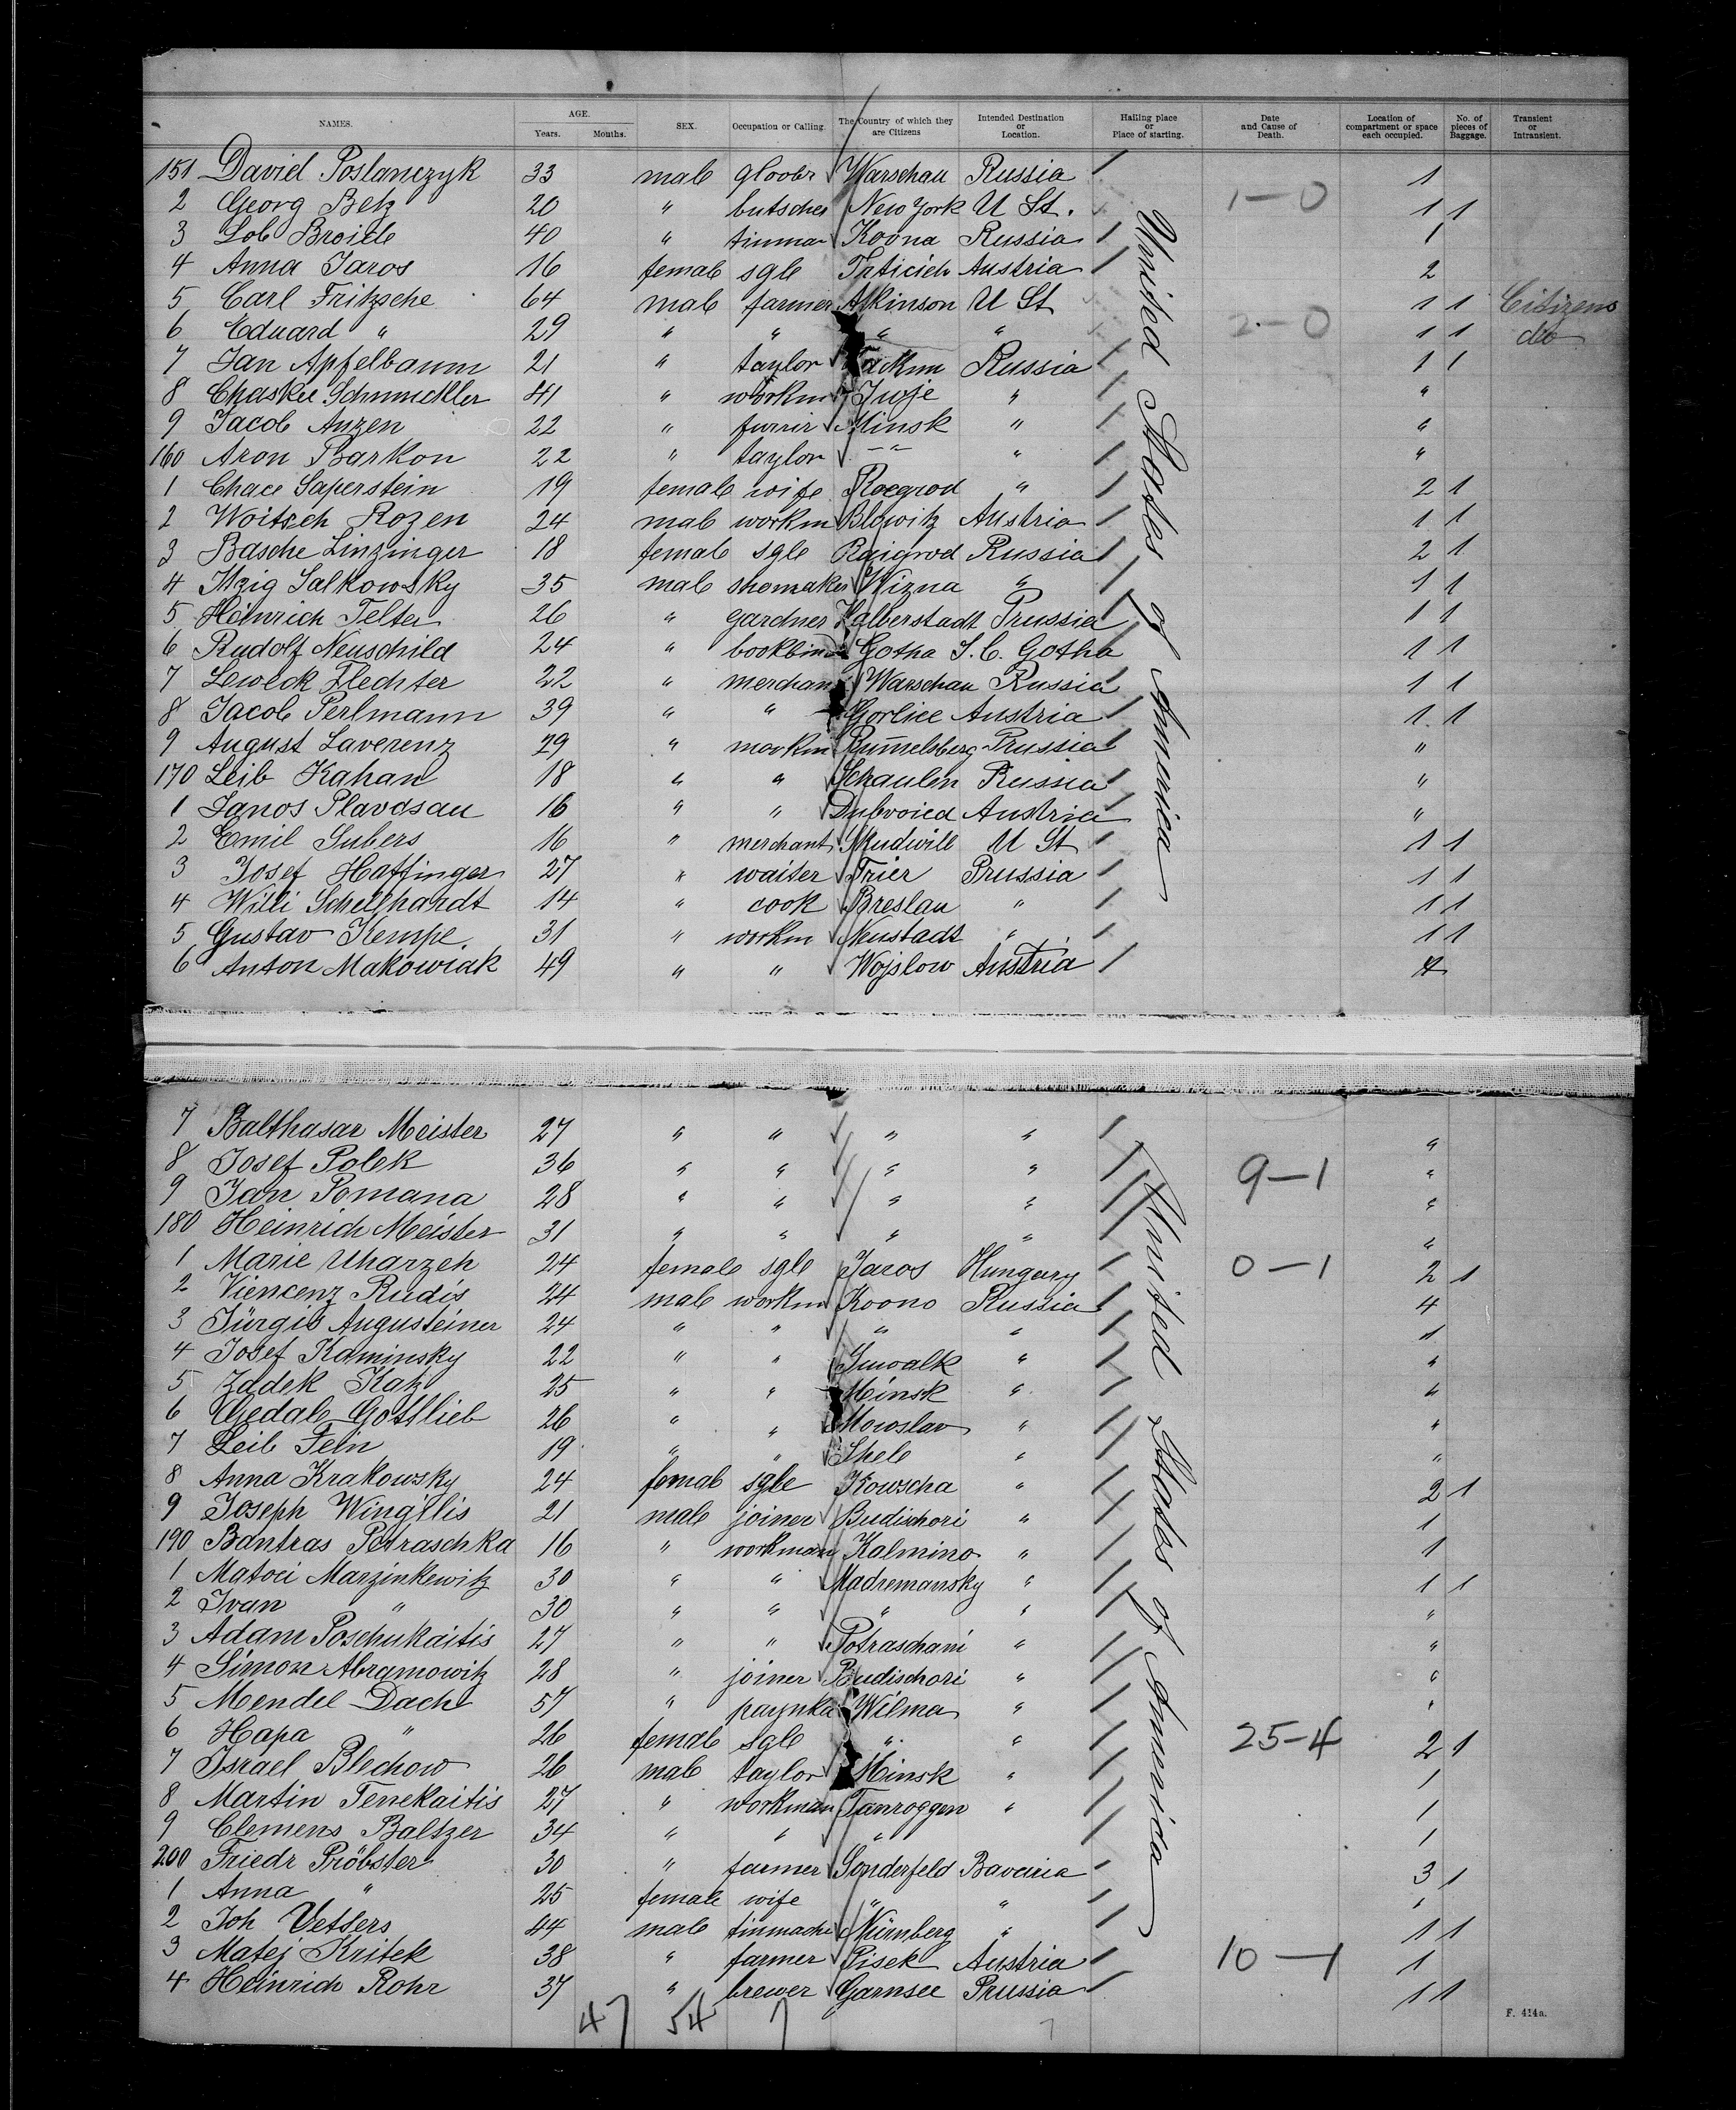 NAMES. AGE. Years. Months. SEX. Occupation or Calling. The Country of which they are Citizens Intended Destination or Location. Hailing place or Place of starting. Date and Cause of Death. Location of compartment or space each occupied. No. of pieces of Baggage. Transient or Intransient.
151 David Poslanczyk 33 male Warschau Russia 1
2 Georg Betz 20 " butscher New York U St. 1-0 1 1
3 Lob Broide 40 " tinman Koona Russia 1
4 Anna Jaros 16 female sgle Austria 2
5 Carl Fritzsche 64 male farmer Atkinson U St 1 1 Citizens
6 Eduard " 29 " " " " 2-0 1 1 do
7 Jan Apfelbaum 21 " taylor Russia 1 1
8 Chaskel Schmuckler 41 " workm " "
9 Jacob Anzen 22 " furrir Minsk " "
160 Aron Barkon 22 " taylor -"- " "
1 Chace Saperstein 19 female wife " 2 1
2 Woitsch Rozen 24 male workm Blowitz Austria 1 1
3 Basche Linzinger 18 female sgle Raigrod Russia 2 1
4 Itzig Salkowsky 35 male shomaker Wizna " 1 1
5 Heinrich Telter 26 " gardner Halberstadt Prussia 1 1
6 Rudolf Neuschild 24 " bookbind Gotha S. C. Gotha 1 1
7 Leweck Flechter 22 " merchan Warschau Russia 1 1
8 Jacob Perlmann 39 " " Gorlice Austria 1 1
9 August Laverenz 29 " workm Rummelsberg Prussia "
170 Leib Kahan 18 " " Schaulen Russia "
1 Janos Plavdsau 16 " " Austria "
2 Emil Subers 16 " merchant U St 1 1
3 Josef Haffinger 27 " waiter Trier Prussia 1 1
4 Willi Schellhardt 14 " cook Breslau " 1 1
5 Gustav Kempe 31 " workm Neustadt " 1 1
6 Anton Makowiak 49 " " Wojslow Austria 4
7 Balthasar Meister 27 " " " " "
8 Josef Polek 36 " " " " 9-1 "
9 Jan Pomana 28 " " " " "
180 Heinrich Meister 31 " " " " "
1 Marie Uharzeh 24 female sgle Jaros Hungary 0-1 2 1
2 Viencenz Rudis 24 male workm Koono Russia 4
3 Jürgis Augusteiner 24 " " " " 1
4 Josef Kaminsky 22 " " Suwalk " "
5 Zadek Katz 25 " " Minsk " "
6 Gedale Gottlieb 26 " " Mowoslav " "
7 Leib Fein 19 " " " "
8 Anna Krakowsky 24 female sgle Kowscha " 2 1
9 Joseph Wingllis 21 male joiner Budischori " 1
190 Bantras Petraschka 16 " workman Kalmino " 1
1 Matoei Marzinkewitz 30 " " Madremansky " 1 1
2 Ivan " 30 " " " " "
3 Adam Poschukaitis 27 " " Potraschani " "
4 Simon Abramowitz 28 " joiner Budischori " "
5 Mendel Dach 57 " Wilma " "
6 Hapa " 26 female sgle " " 25-4 2 1
7 Israel Blechow 26 male taylor Minsk " 1
8 Martin Tenekaitis 27 " workman Tanroggen " 1
9 Clemens Baltzer 34 " " " 1
200 Friedr Pröbster 30 " farmer Sonderfeld Bavaria 3 1
1 Anna " 25 female wife " " "
2 Joh Vetters 44 male tinmache Nürnberg " 1 1
3 Matej Kritek 38 " farmer Pisek Austria 10-1 1
4 Heinrich Rohr 37 " brewer Garnsee Prussia 1 1
47 54 7 7
United States of America
United States of America
F. 414a.